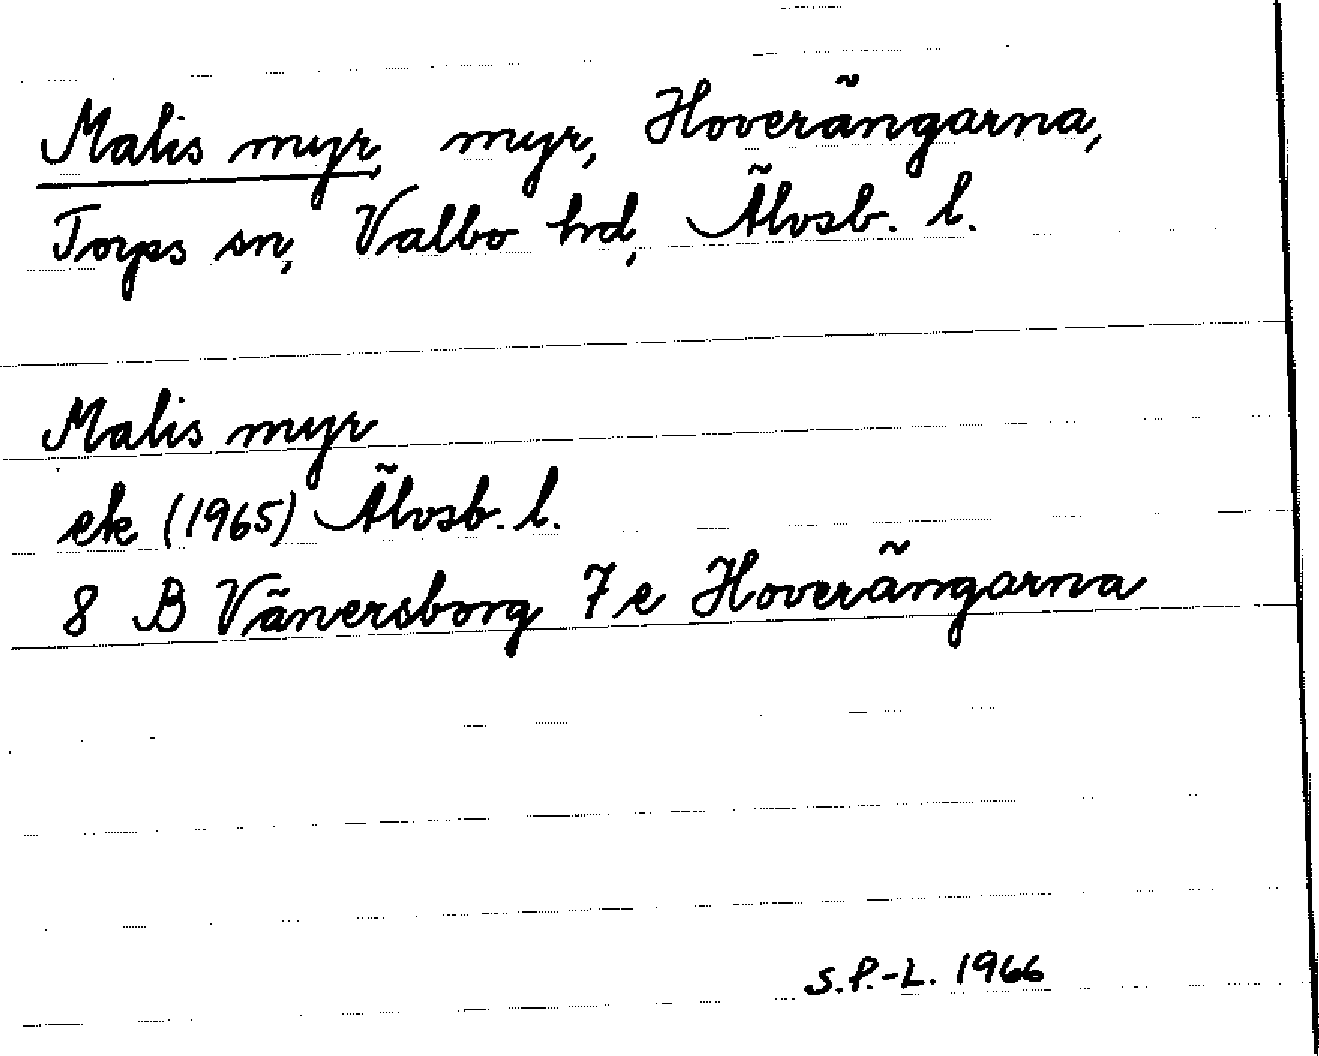 Malis myr, myr, Hoverängarna,
Torps sn, Valbo hd, Älvsb. l.
Malis myr
ek (1965) Älvsb. l.
8 B Vänersborg 7e Hoverängarna
S.P.-L. 1966